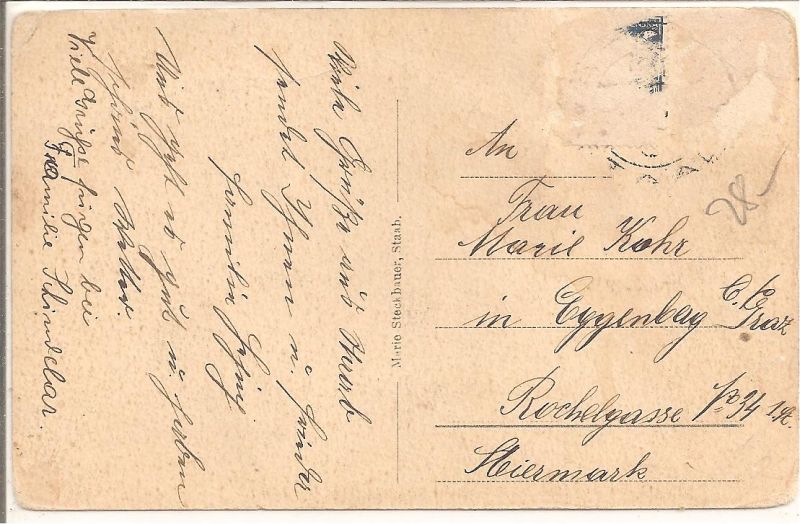 Viele Grüße aus Staab
sendet Ihnen u. Kinder
Familie
Uns geht es gut u. haben
schönes Wetter.
Viele Grüße fügen bei
Familie Schindelar.
Marie Steckbauer, Staab.
An
Frau
Marie Kohr
in Eggenberg b/
Graz
Rochelgasse No 34 1. St.
Steiermark
28-